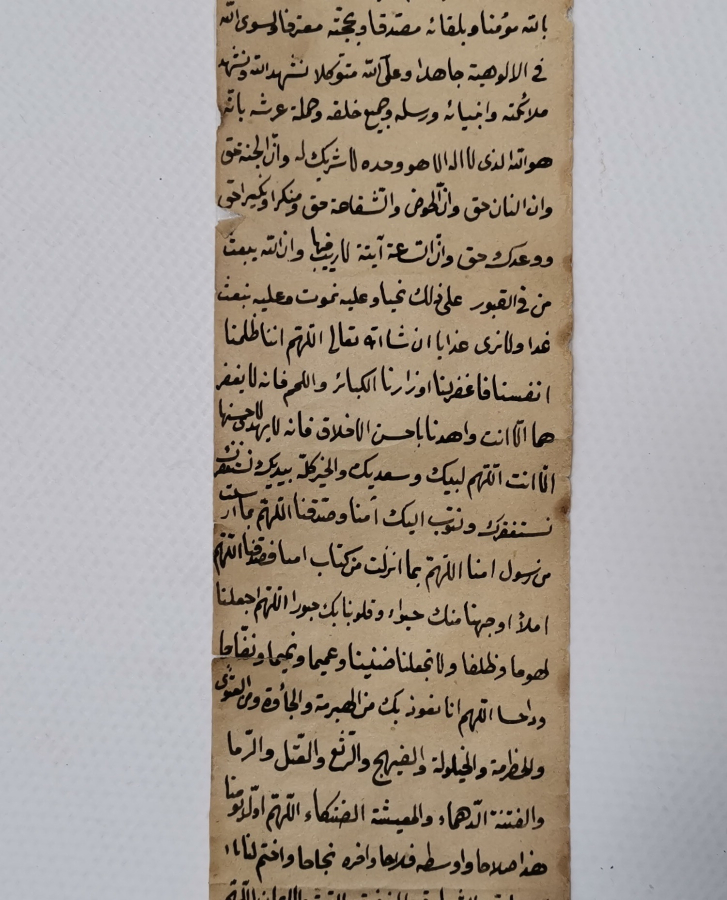 بالله مؤمنا وبلقائه مصدقا وبحجته معترفا ولسوى الله
في الالوهية جاهدا وعلى الله متوكلا نشهد الله ونشهد
ملائكته وانبيائه ورسله وجميع خلقه وحملة عرشه بانه
هو الله الذى لا اله الا هو وحده لا شريك له وان الجنة حق
وان النار حق وان الحوض والشفاعة حق ومنكرا ونكيرا حق
ووعدك حق وان الساعة آتية لا ريب فيها وان الله يبعث
من في القبور على ذلك نحيا وعليه نموت وعليه نبعث
غدا ولا نرى عذابا ان شا الله تعالى اللهم اننا ظلمنا
انفسنا فاغفر لنا اوزارنا الكبائر واللمم فانه لا يغفر
هما الا انت واهدنا باحسن الاخلاق فانه لا يهدى لاحسنها
الا انت اللهم لبيك وسعديك والخير كله بيديك
نستغفرك ونتوب اليك آمنا وصدقنا اللهم بما ارسلت
من رسول امنا اللهم بما انزلت من كتاب امنا فصدقنا اللهم
املأ اوجهنا منك حياء وقلوبنا بك حبورا اللهم اجعلنا
لهوما وظلفا ولا تجعلنا ضنينا وعميما ونميما ونفاجا
اللهم انا نعوذ بك من الهبرمة والجأوة ومن العثوى
والخطرمة والحيلولة والفيهج والرثع والقتل والرما
والفتنة الدهماء والمعيشة الضنكاء اللهم اول يومنا
هذا صلاحا واوسطه فلاحا واخره نجاحا واختم لنا